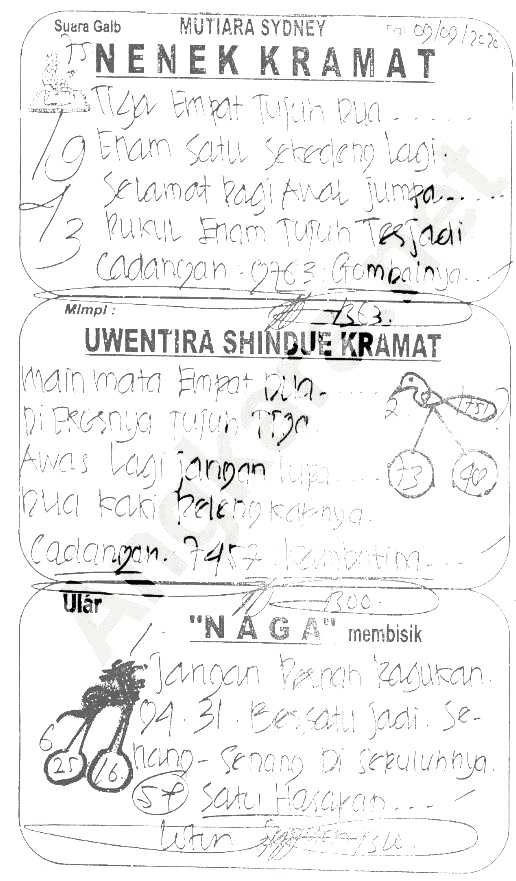 Suara Gaib MUTIARA SYDNEY 09/09/2020
NENEK KRAMAT
Tiga Empat Tujuh Dua.....
Enam Satu Sekedeng Lagi.
Selamat bagi Awal jumpa......
Pukul Enam Tujuh Terjadi
Cadangan. 9763. Gambarnya...
7363.
Mimpi :
UWENTIRA SHINDUE KRAMAT
main mata Empat Dua.....
Di Ekornya Tujuh Tiga
Awas Lagi jangan Lupa.....
Dua kaki Pelengkapnya.
Cadangan. 7457. Kamboting...
2
73 40
1300.
Ular
"NAGA" membisik
Jangan Pernah Ragukan.
94.31. Bersatu Jadi. Se-
nang-Senang Di Sepuluhnya.
6
25 16.
57 Satu Harapan....
Lotin 1320.